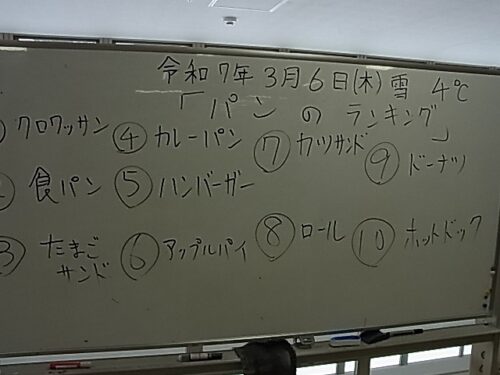 令和7年3月6日(木) 雪 4℃
「パンのランキング」
① クロワッサン
② 食パン
③ たまご
サンド
④ カレーパン
⑤ ハンバーガー
⑥ アップルパイ
⑦ カツサンド
⑧ ロール
⑨ ドーナツ
⑩ ホットドック